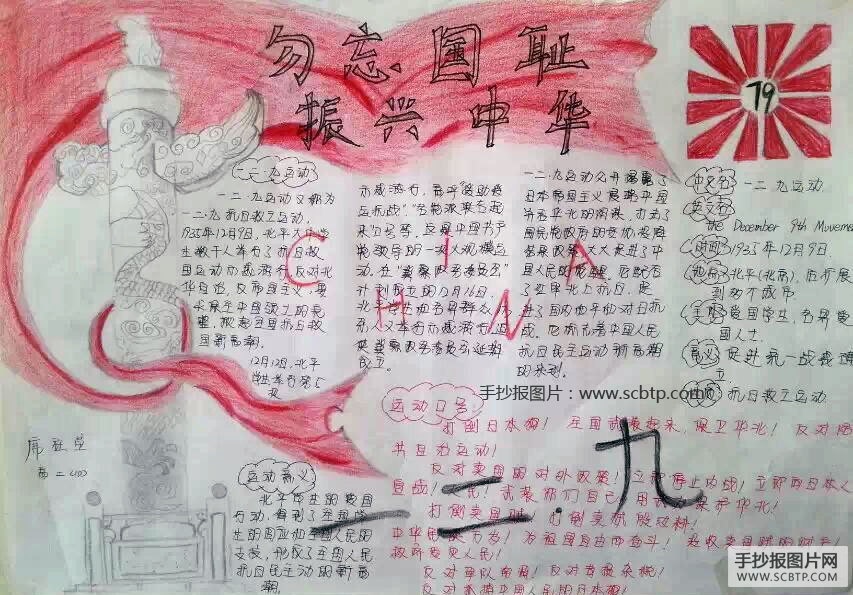 勿忘国耻
振兴中华
19
一二·九运动
一二·九运动又称为
一二·九抗日救亡运动,
1935年12月9日,北平大中学
生数千人举行了抗日救
国运动示威游行,反对华
北自治,反帝国主义,要
求保全中国领土的完
整,掀起全国抗日救
国新高潮.
12月12日,北平
学生举行第5
次
示威游行,高呼"援助绥
远抗战","各党派联合起
来"口号等,这是中国共产
党领导的一次大规模运
动.在"冀察政务委员会"
计划成立的12月16日,
北平学生和各界群众
又举行示威游行,迫
使冀察政务委员会延期
成立.
一二·九运动公开揭露了
日本帝国主义侵略中国
并吞华北的阴谋,打击了
国民党政府的妥协投降
大大促进了中
国人民的觉醒.
北上抗日,促
进了国内和平和对日抗
战.它标志着中国人民
抗日民主运动新高潮
的来到.
CHINA
中文名 一二九运动.
英文名
the December 9th Movement
时间 1935年12月9日.
地点 北平(北京),后扩展
到两个城市.
主体 爱国学生,各界爱
国人士.
意义 促进统一战线建
立
抗日救亡运动
手抄报图片:www.scbtp.com
运动口号:
打倒日本狗! 全国武装起来,保卫华北! 反对防
共自治运动!
反对卖国的对外政策! 立即停止内战! 立即对日本人
宣战! 武装我们自己 保护华北!
打倒卖国贼! 打倒
中华民族万岁! 为祖国自由而奋斗!
政府爱民人民!
反对 反对苛捐杂税!
一二·九
席亚单
高二(4)
运动意义
北平学生的爱国
行动,得到了全国学
生的响应和全国人民的
支援,形成了全国人民
抗日民主运动的新高
潮.
手抄报图片网
WWW.SCBTP.COM